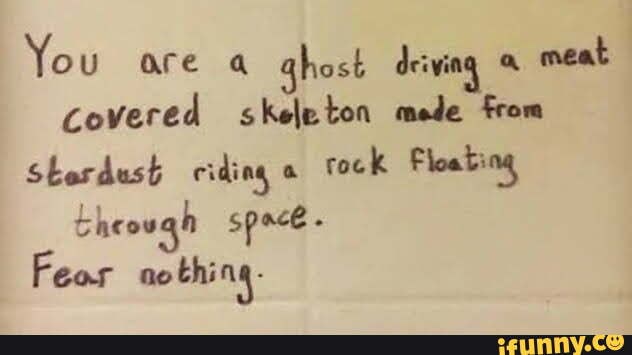 You are a ghost driving a meat
covered skeleton made from
stardust riding a rock floating
through space.
Fear nothing.
ifunny.co